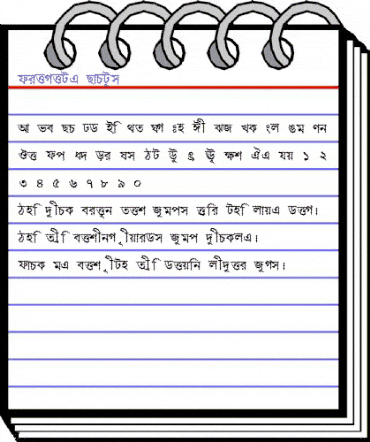 ফরত্তগত্তটএ ছাচটুস
আ ভব ছচ ঢড ইি থত ঘ্গ ঃহ ঈী ঝজ খক ংল ঙম ণন
ঔত্ত ফপ ধ্দ ড়র ষস ঠট উু ঋৃ ঊূ ক্ষশ ঐএ যয় ১ ২
৩ ৪ ৫ ৬ ৭ ৮ ৯ ০
ঠহি দুীচক বরত্তৃন তত্তশ জুমপস ত্তৃরি টহি লায়এ ডত্তগ।
ঠহি তীৃি বত্তশীনগ ূীয়ারডস জুমপ দুীচকলএ।
ফাচক মএ বত্তশ ূীটহ তীৃি ডত্তয়নি লীদুত্তর জুগস।